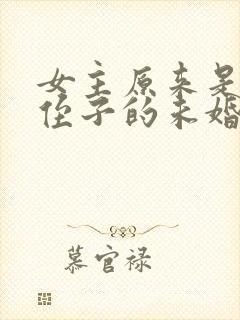 女主原来是
侄子的未婚
慕官禄